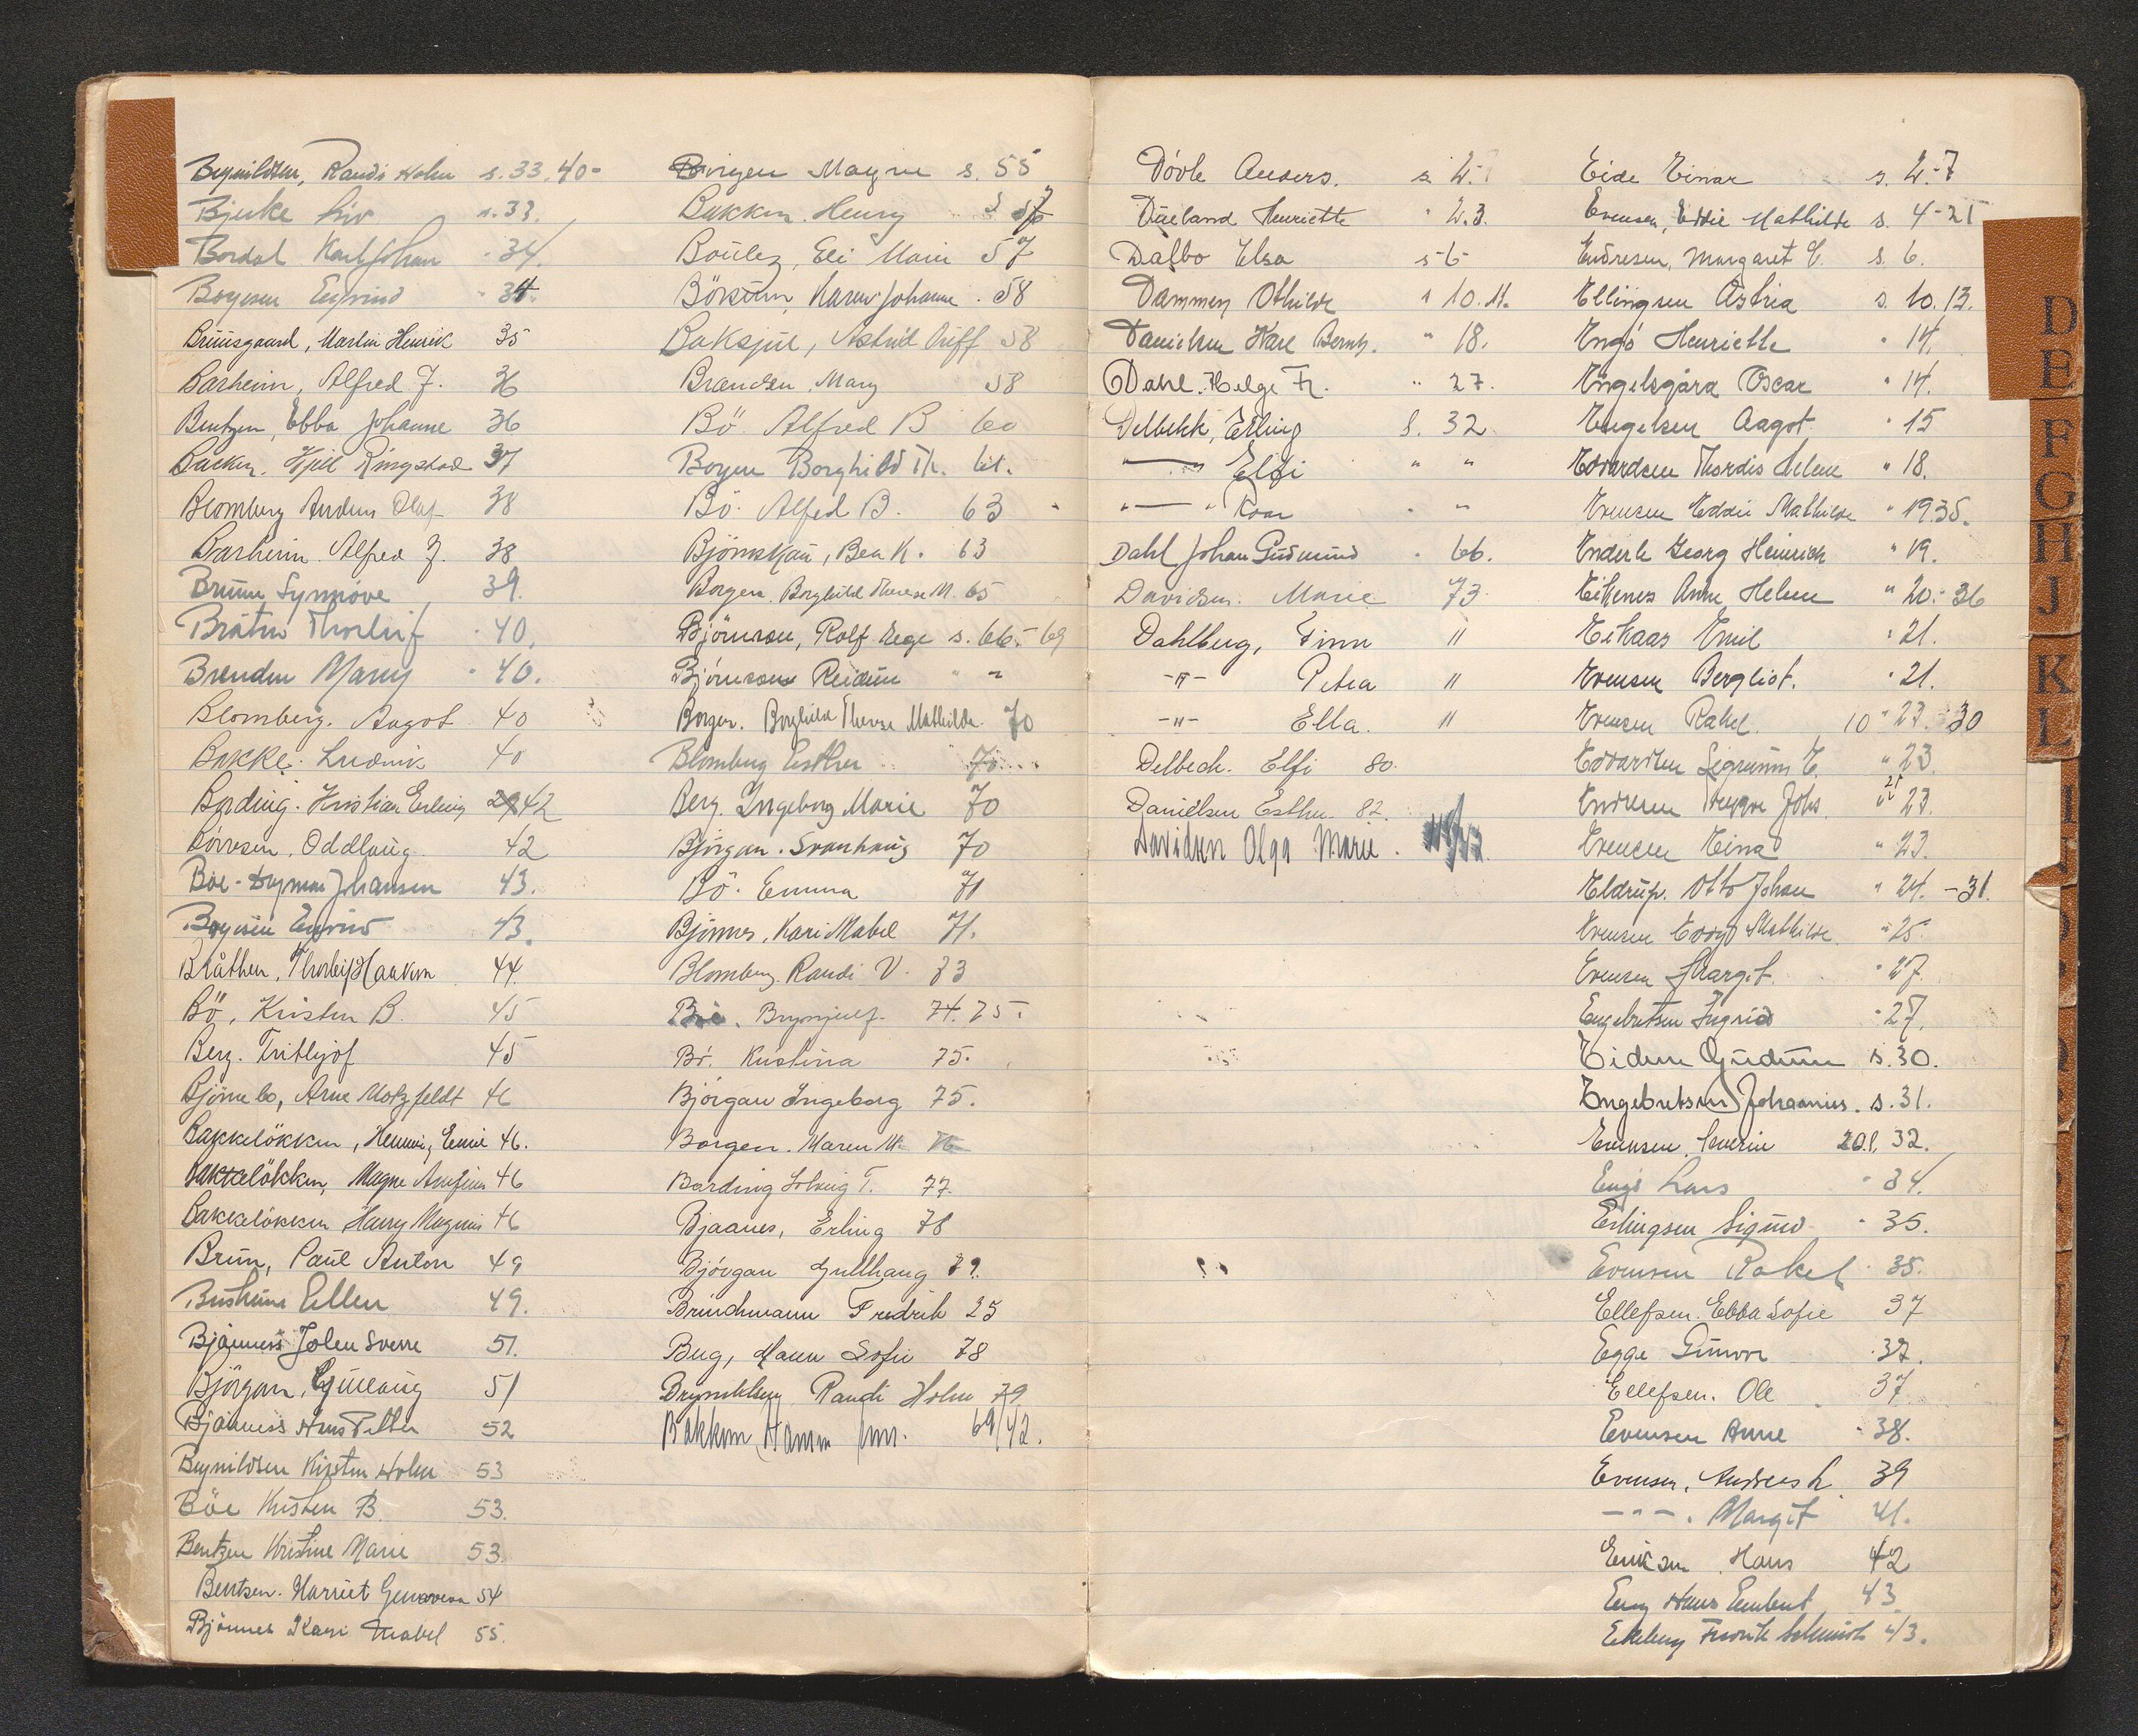 Brynildsen, Randi Holm s. 33, 40-
Bjerke Liv s. 33.
Bordal Karl Johan - 34
Boyesen Eyvind - 34.
Bruusgaard, Martin Henrik 35
Barheim, Alfred J. 36
Bentzen, Ebba Johanne 36
Backer. Kjell Ringstad 37
Blomberg Anders Olaf 38
Barheim. Alfred J. 38
Bruun Synnöve 39.
Bråten Thorleif - 40.
Brenden Marry - 40.
Blomberg. Aagot 40
Bakke. Ludvik 40
Bording. Kristian Erling 42
Börresen, Oddlaug 42
Böe - Dagmar Johansen 43.
Boyesen Eyvind 43.
Bråthen, Thorleif Haakon 44.
Bö, Kristen B. 45
Berg. Frithjof 45
Björnebo, Arne Motzfeldt 46
Bakkelökken, Henny, Emil 46.
Bakkelökken, Magne Arnfinn 46
Bakkelökken Harry Magnus 46
Brun, Paul Anton 49
Ellen 49.
Bjånness Johan Sverre 51.
Björgan, Gullaug 51
Bjånness Hans Petter 52
Brynildsen Kirsten Holm 53
Böe Kristen B. 53.
Bentzen Kristine Marie 53.
Bentsen. Harriet Genoveva 54
Björnnes Kari Mabel 55.
Borgen Magne s. 55
Bakken. Henry s 57
Boulez, Eli Marie 57
Börsum, Karen Johanne. 58
Baksjul, Astrid 58
Brandsen, Mary 58
Bö Alfred B 60
Boyen Borghild Th. 61.
Bö. Alfred B. 63
Björnskau, Bea K. 63
Borgen. Borghild Therese M. 65
Björnson, Rolf Ege s. 66.- 69
Björnson Reidun " "
Borgen. Borghild Therese Mathilde. 70
Blomberg Esther 70.
Berg. Ingeborg Marie 70
Björgan. Svanhaug 70
Bö. Emma 71
Björnnes, Kari Mabel 71.
Blomberg. Randi V. 73
Böe. Brynjulf. 74. 75.
Bö. Kristina 75.
Björgan Ingeborg 75.
Borgen. Maren M. 76
Bording Solveig T. 77.
Bjaanes, Erling 78
Björgan Gullhaug 79.
Brinchmann Fredrik 25
Berg, Hanna Sofie 78
Brynildsen, Randi Holm 79
Bakken Hanna 69/42.
Dövle Anders. s. 2.
Dæland Henriette " 2.3.
Dalbo Elsa s 6
Dammen Othilde s 10. 11.
Danielsen Kåre Bernh. " 18.
Dahl. Helge Fr. " 27.
Delbekk, Erling S. 32
" — Elfi " "
" — " Roar " "
Dahl Johan Gudmund - 66.
Davidsen. Marie 73
Dahlberg, Finn "
-"- Petra "
-"- Ella. "
Delbech. Elfi 80.
Danielsen Esther 82.
Davidsen Olga Marie.
Eide Einar s. 2.-7
Evensen, Eddie Mathilde s. 4-21
Endresen, Margaret E. s. 6.
Ellingsen Astrid s. 10. 13.
Engö Henriette " 14.
Engelsgård Oscar " 14.
Engelsen Aagot " 15
Edvardsen Thordis Helene " 18.
Evensen Eddie Mathilde " 19.35.
Enderle Georg Heinrich " 19.
Eikenes Anne Helene " 20.- 36
Eikaas Emil " 21.
Evensen Bergliot. " 21.
Evensen Rakel. 10 " 23. 30
Edvardsen Sigrunn E. " 23.
Endresen Trygve Johs. 21 " 23.
Evensen Einar " 23.
Eldrup. Otto Johan " 24. -31.
Evensen Eddy Mathilde. " 25.
Evensen Margit. " 27.
Engebretsen Ingrid " 27.
Eidem Gudrun s. 30.
Engebretsen Johannes. s. 31.
Evensen, Severin 20 l. 32.
Engö Lars " 34.
Erlingsen Sigurd - 35.
Evensen Rakel - 35.
Ellefsen. Ebba Sofie 37
Egge Gunvor . 37.
Ellefsen. Ole 37
Evensen Anne - 38.
Evensen, Andreas L. 39
— " — . Margit 41.
Eriksen Hans 42
Eng Hans Embret 43.
Ekeberg Fredrik Schmidt 43.
D
E
F
G
H
J
K
L